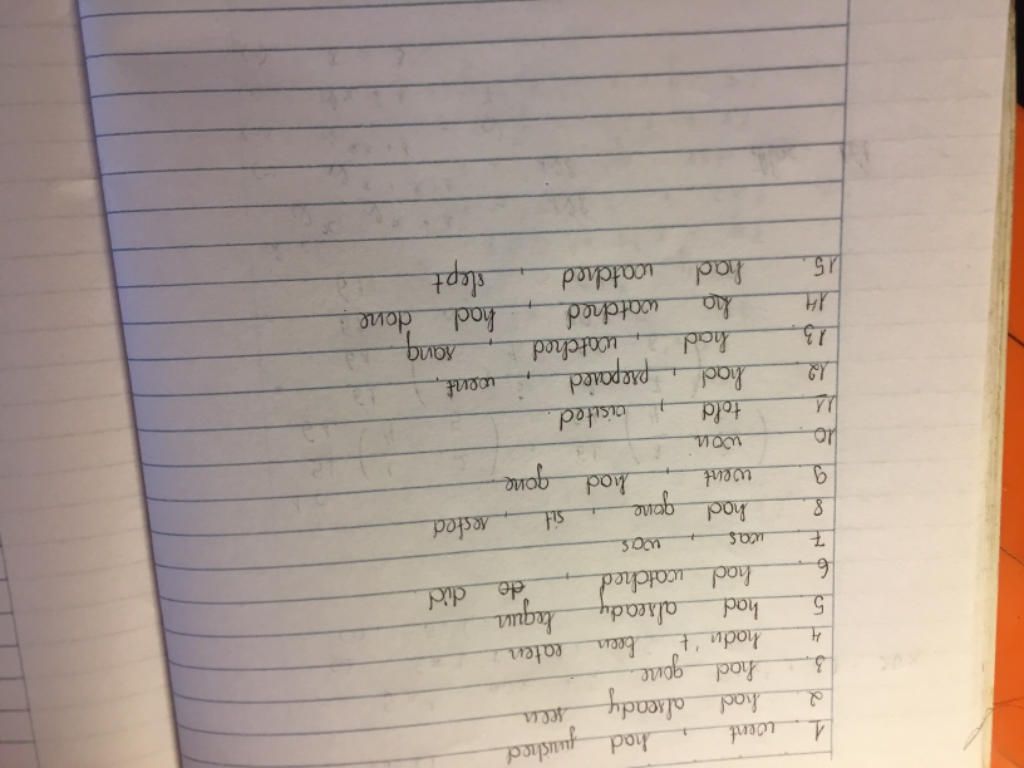 1. went, had finished
2. had already seen
3. had gone
4. hadn't been eaten
5. had already begun
6. had watched, did.
7. was, was
8. had gone, sit, rested
9. went, had gone
10. won
11. told, visited
12. had, prepared, went.
13. had, watched, sang
14. watched, had done.
15. had watched, slept